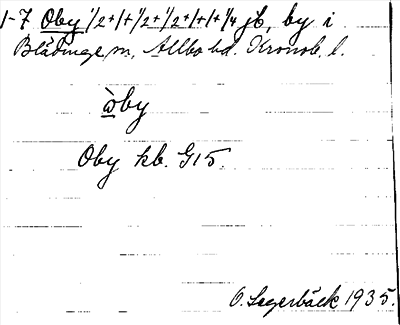 1-7 Oby 1/2+1+1/2+1/2+1+1+1/4 jb, by i
Blädinge sn, Allbo hd. Kronob. l.
òby
Oby kb. G15
O. Lagerbäck 1935.